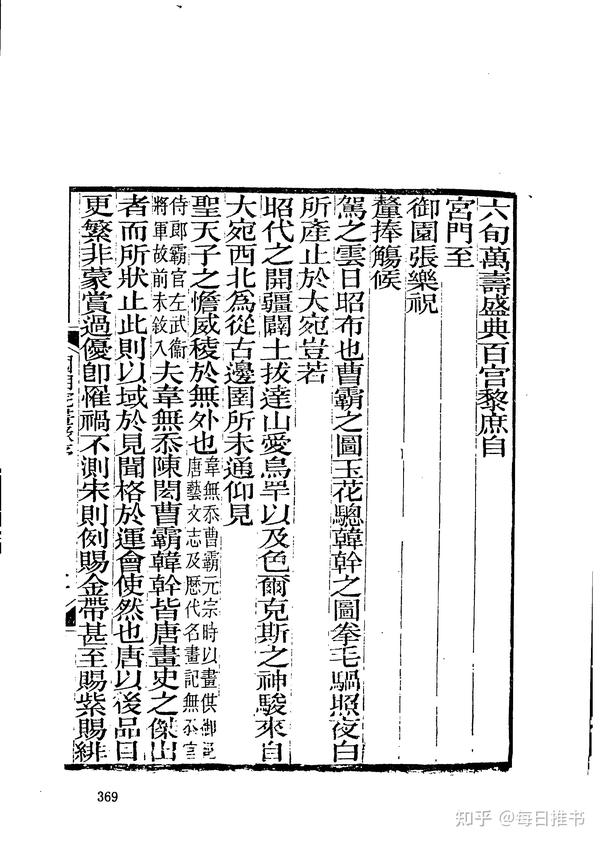 六旬萬壽盛典百官黎庶自
宮門至
御園張樂祝
釐捧觴候
駕之雲日昭布也曹霸之圖玉花驄韓幹之圖拳毛騧照夜白
所產止於大宛豈若
昭代之開疆闢土拔達山愛烏罕以及色爾克斯之神駿來自
大宛西北為從古邊圉所未通仰見
聖天子之憺威稜於無外也
韋無忝曹霸元宗時以畫供御
唐藝文志及歷代名畫記無忝官
侍郎霸官左武衞
將軍故前未敘入
夫韋無忝陳閎曹霸韓幹皆唐畫史之傑出
者而所狀止此則以域於見聞格於運會使然也唐以後品目
更繁非蒙賞過優卽罹禍不測宋則例賜金帶甚至賜紫賜緋
369
知乎 @每日推书